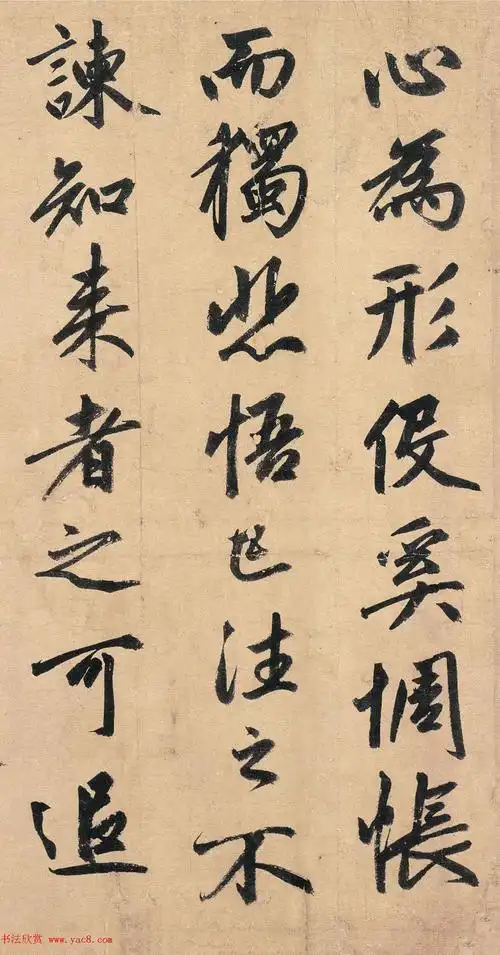 心為形役奚惆悵
而獨悲悟已往之不
諫知来者之可追
书法欣赏 www.yac8.com